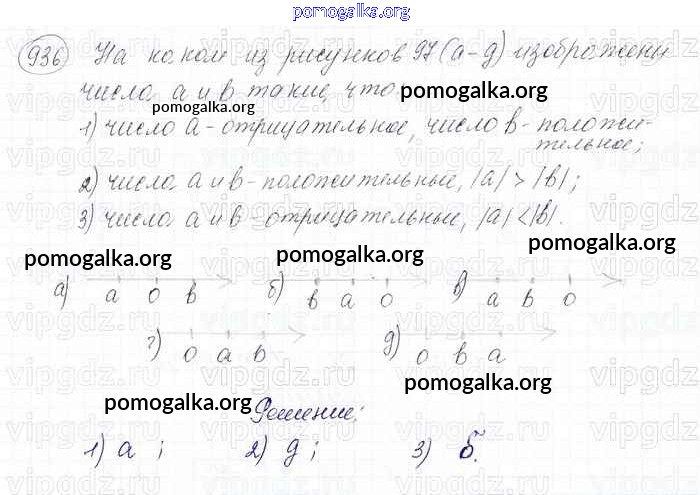 pomogalka.org
936. На каком из рисунков 97 (а-д) изображены
числа а и в такие, что
pomogalka.org
pomogalka.org
1) число а - отрицательное, число в - положи-
тельное;
2) числа а и в - положительные, |a| > |b|;
3) числа а и в - отрицательные, |a| < |b|.
pomogalka.org
pomogalka.org
pomogalka.org
а) а 0 в б) в а 0 в) а в 0
г) 0 а в д) 0 в а
pomogalka.org
pomogalka.org
Решение:
1) а ; 2) д ; 3) б.